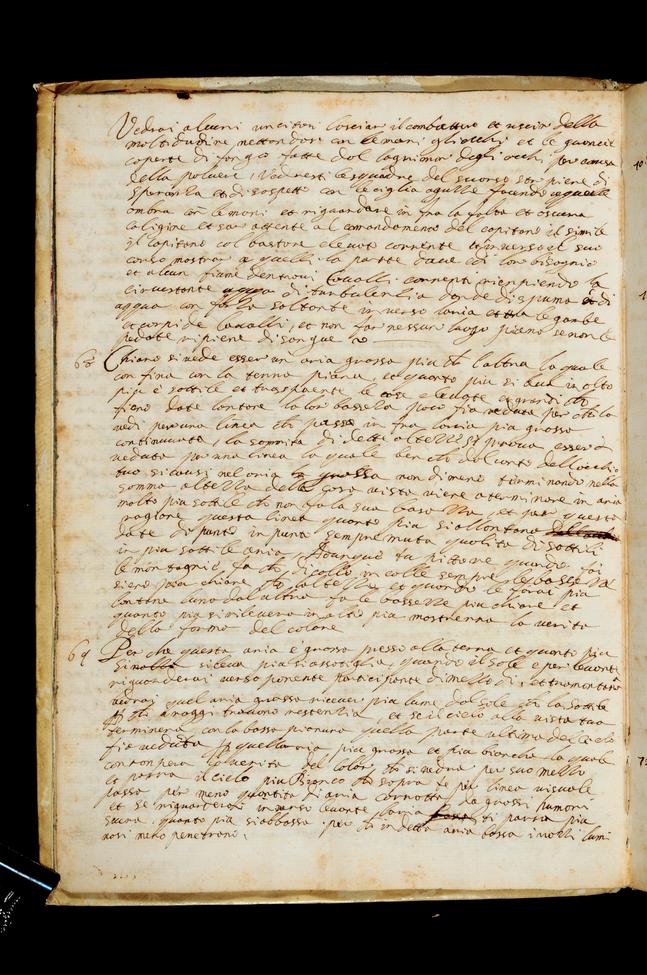 Vedrai alcuni vincitori lasciar il combattere et uscir della
moltitudine nettandosi con le mani gli occhi et le guancie
coperte di fango fatte dal lagrimar degli occhi per causa
della polvere, Vedresti le squadre del succorso star piene di
speranza et di sospetto con le ciglia aguzze facendo a quelle
ombra con le mani et riguardare in fra la folta et oscura
caligine et star attente al comandamento del capitano et simile
il capitano col bastone elevato corrente inverso il suc
corso mostrar a quelli la parte dove di lor bisogno
et alcun fiume dentrovi Cavalli correnti riempiendo la
circustante acqua di turbulentia donde di spuma et di
acqua con fusa saltante inverso laria et tra le gambe
et corpi de Cavalli, et non far nessun luogo piano se non le
pedate ripiene di sangue
68 Chiaro si vede esser un aria grossa piu che l altra la quale
con fina con la terra piana, et quanto piu si leva in alto
piu è sottile et trasparente le cose elevate et grandi che
fieno date lontane la lor bassezza poco fia veduta per che la
vedi per una linea che passa in fra laria piu grossa
continuata, la sommità di dette altezze si prova esser
veduta per una linea la quale ben che dal canto dell occhio
tuo si causi nell aria grossa non dimeno terminando nella
somma altezza della cosa vista viene a terminare in aria
molto piu sottile che non fa la sua bassezza, et per questa
ragione questa linea quanto piu si allontana
da te di punto in punto sempre muta qualità di sottile
in piu sottile aria, Adunque tu pittore quando fai
le montagnie, fa che di colle in colle sempre le bassezze
sieno piu chiare che l altezze et quando le farai piu
lontane luno dal altra fa le bassezze piu chiare et
quanto piu si rileverà in alto piu mostrerra la verità
della forma et del colore
69 Per che questa aria è grossa presso alla terra et quanto piu
si leva piu si assotiglia, quando il sole è per levante
riguarderai verso ponente participante di mezzo dì, et tramontana
vedrai quel aria grossa ricever piu lume dal sole che la sottile
per che i raggi trovono resistenzia, et se il cielo alla vista tua
terminerà con la bassa pianura quella parte ultima del cielo
fia veduta per quell aria piu grossa et piu bianca la quale
corrompera la verità del color che si vedra per suo mezzo
et parra il cielo piu Bianco che sopra te per linea visuale
passa per meno quantità di aria corrotta da grossi humori
et se riguarderai inverso levante laria ti parra piu
scura quanto piu si abbassa per che in detta aria bassa i razzi lumi
nosi meno penetrano.